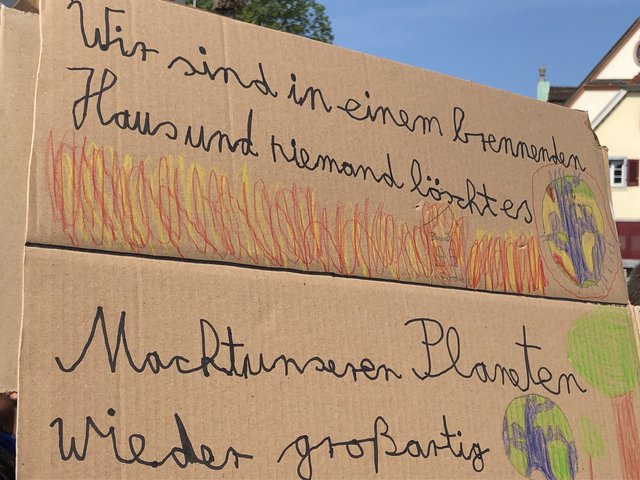 Wir sind in einem brennenden
Haus und niemand löscht es
Macht unseren Planeten
wieder großartig